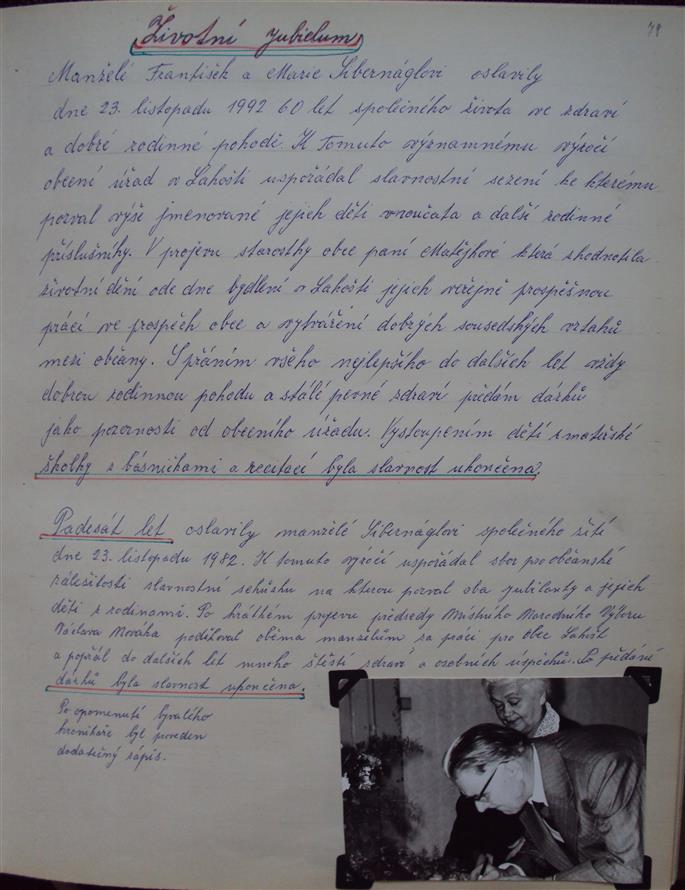 79
Životní jubileum
Manželé František a Marie Sibernáglovi oslavily
dne 23. listopadu 1992 60 let společného života ve zdraví
a dobré rodinné pohodě. K Tomuto významnému výročí
obecní úřad v Lahošti uspořádal slavnostní sezení ke kterému
pozval výše jmenované jejich děti vnoučata a další rodinné
příslušníky. V projevu starostky obce paní Matějkové která zhodnotila
životní dění ode dne bydlení v Lahošti jejich veřejně prospěšnou
prácí ve prospěch obce a vytváření dobrých sousedských vztahů
mezi občany. S přáním všeho nejlepšího do dalších let vždy
dobrou rodinnou pohodu a stálé pevné zdraví předám dárků
jako pozornosti od obecního úřadu. Vystoupením dětí z mateřské
školky s básničkami a recitací byla slavnost ukončena.
Padesát let oslavily manželé Sibernáglovi společného žití
dne 23. listopadu 1982. K tomuto výročí uspořádal sbor pro občanské
záležitosti slavnostní schůzku na kterou pozval oba jubilanty a jejich
děti z rodinami. Po krátkém projevu předsedy Místního Národního Výboru
Václava Nováka poděkoval oběma manželům za práci pro obec Lahošt
a popřál do dalších let mnoho štěstí zdraví a osobních úspěchů. Po předáné
dárků byla slavnost ukončena.
Po opomenutí bývalého
kronikáře byl proveden
dodatečný zápis.